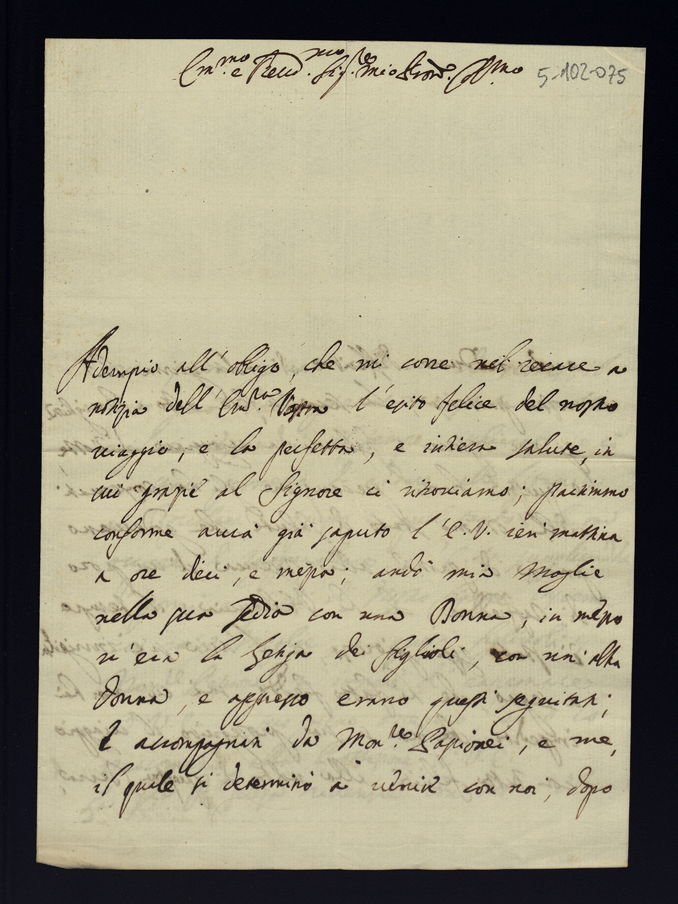 Em.mo e Rev.mo Sig.re mio Pron. Col.mo 5-102-075
Adempio all'obligo, che mi corre nel recare a
notizia dell'Em.za Vostra l'esito felice del nostro
viaggio, e la perfetta, e intiera salute, in
cui grazie al Signore ci ritroviamo; partimmo
conforme avrà già saputo l'E.V. ieri mattina
a ore dieci, e mezza; andò mia Moglie
nella sua sedia con una Donna, in mezzo
v'era la dei figlioli, con un'altra
Donna, e appresso erano questi seguitati,
e accompagnati da Mon.re Passionei, e me,
il quale si determinò à venire con noi, dopo